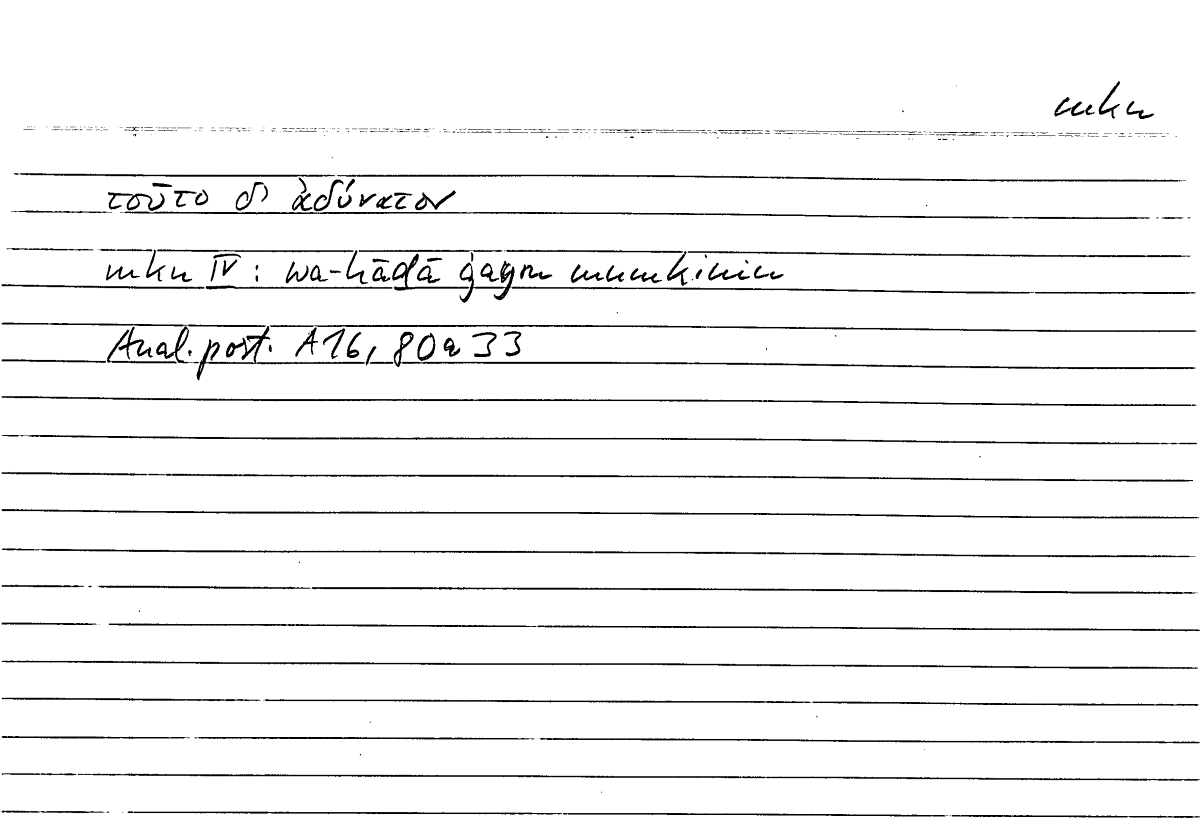 mkn
τοῦτο δ' ἀδύνατον
mkn IV : wa-hāḏā ġayru mumkinin
Anal. post. A16, 80a33